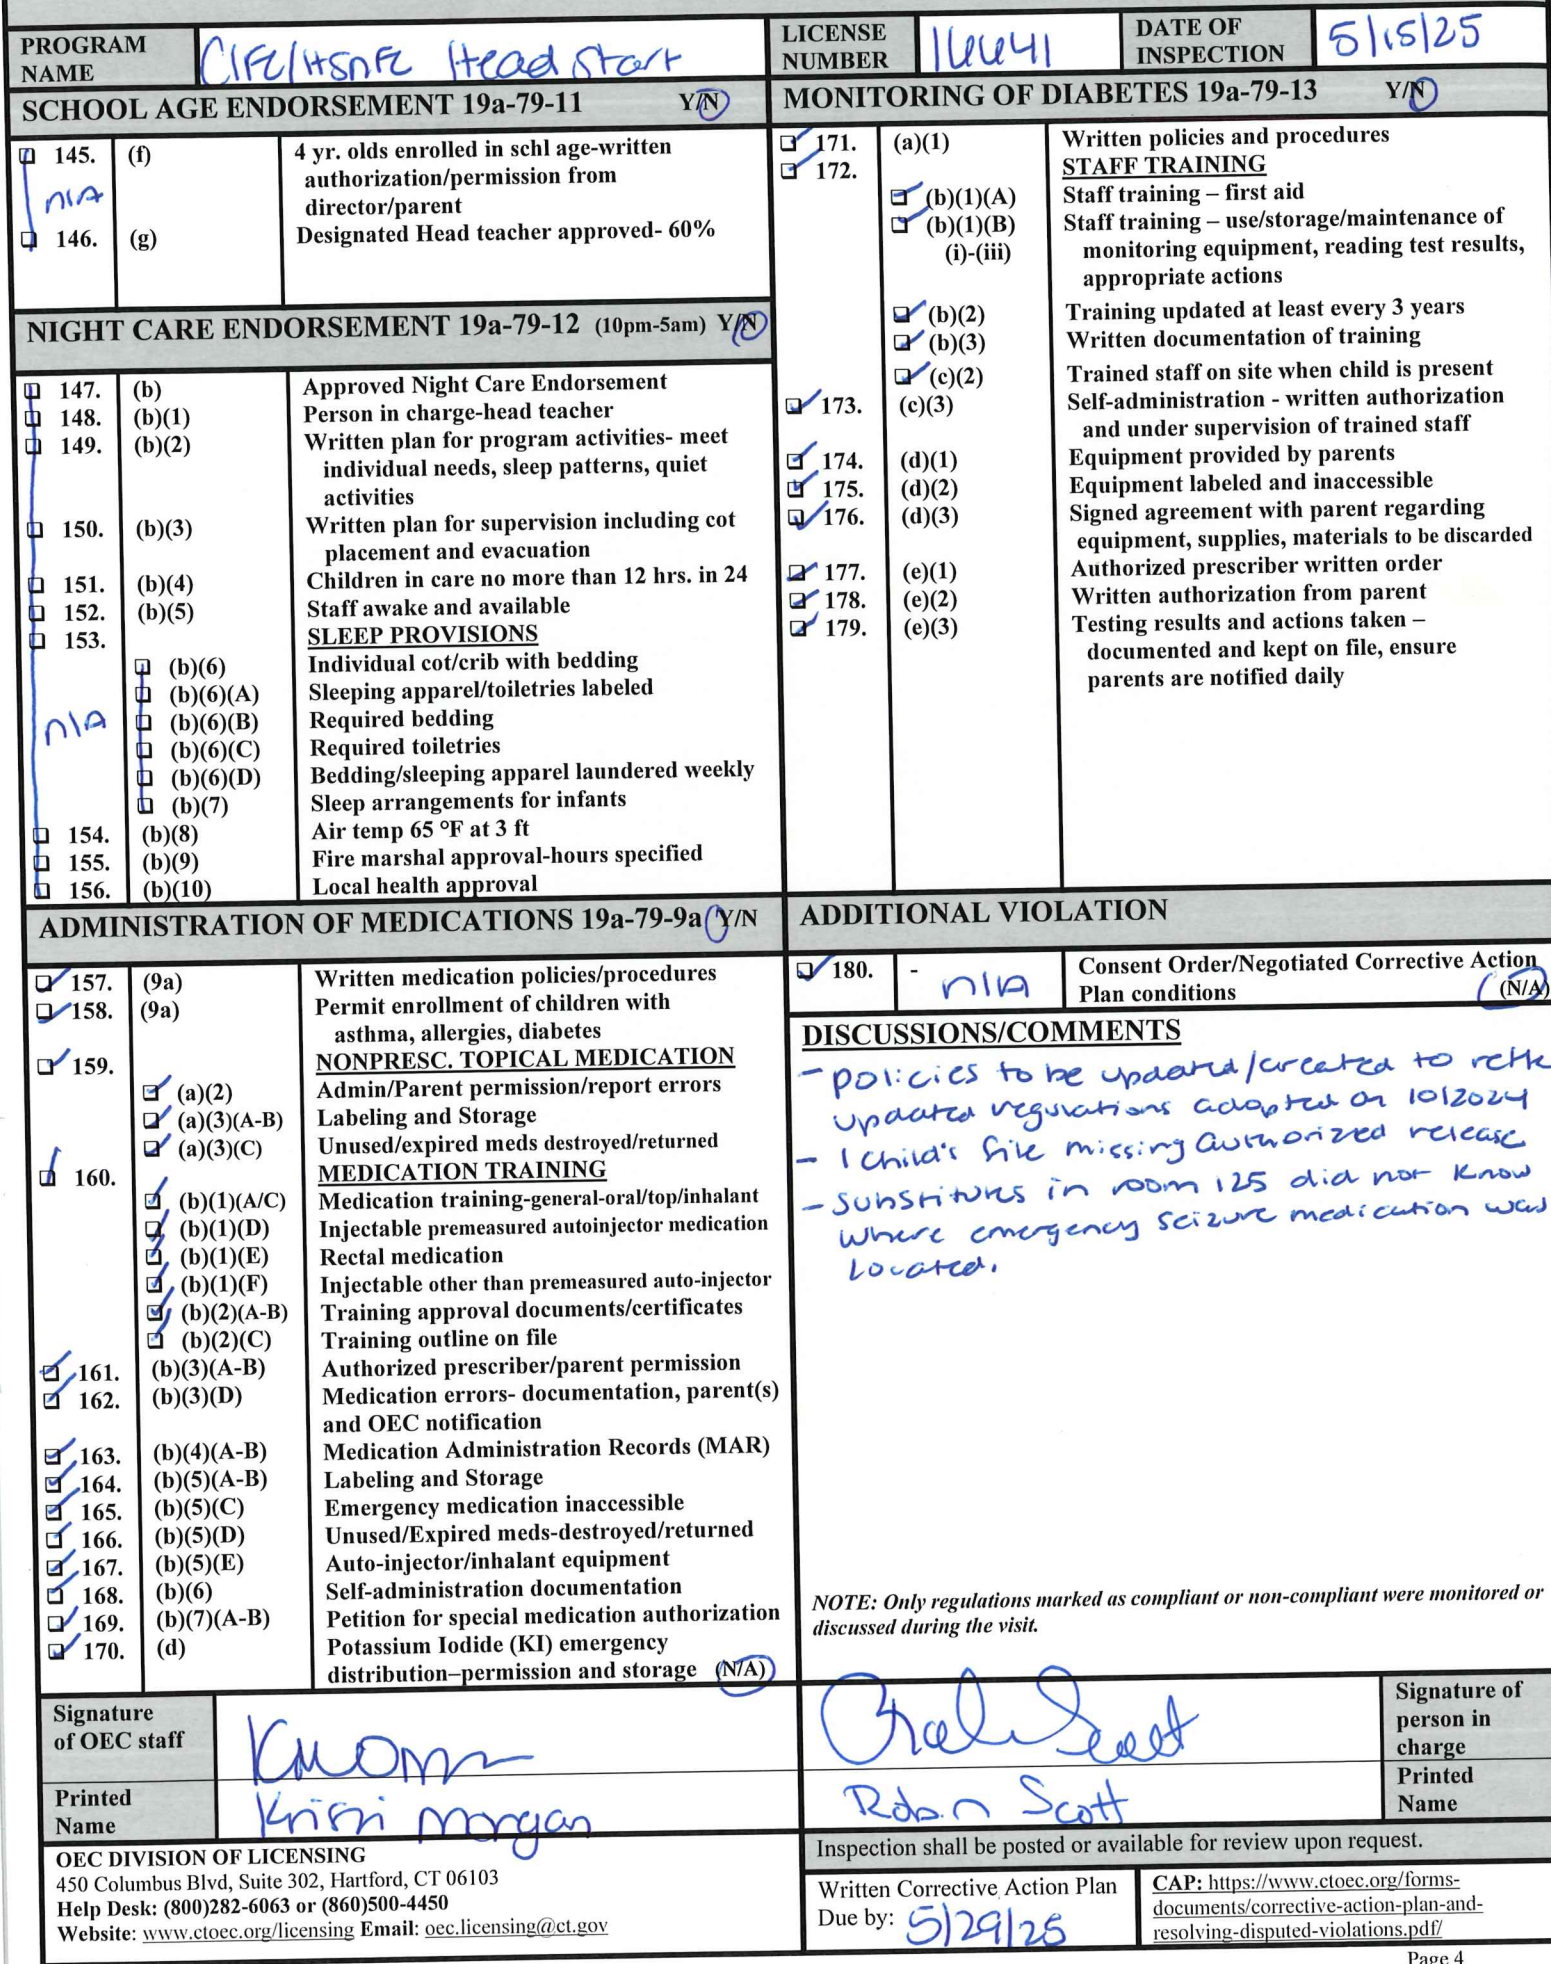 PROGRAM NAME CIFC/HSNFC Head Start
LICENSE NUMBER 16641
DATE OF INSPECTION 5/15/25
SCHOOL AGE ENDORSEMENT 19a-79-11 Y/N
145. (f) 4 yr. olds enrolled in schl age-written
authorization/permission from
director/parent
n/A
146. (g) Designated Head teacher approved- 60%
NIGHT CARE ENDORSEMENT 19a-79-12 (10pm-5am) Y/N
147. (b) Approved Night Care Endorsement
148. (b)(1) Person in charge-head teacher
149. (b)(2) Written plan for program activities- meet
individual needs, sleep patterns, quiet
activities
150. (b)(3) Written plan for supervision including cot
placement and evacuation
151. (b)(4) Children in care no more than 12 hrs. in 24
152. (b)(5) Staff awake and available
153. SLEEP PROVISIONS
(b)(6) Individual cot/crib with bedding
(b)(6)(A) Sleeping apparel/toiletries labeled
n/A
(b)(6)(B) Required bedding
(b)(6)(C) Required toiletries
(b)(6)(D) Bedding/sleeping apparel laundered weekly
(b)(7) Sleep arrangements for infants
154. (b)(8) Air temp 65 °F at 3 ft
155. (b)(9) Fire marshal approval-hours specified
156. (b)(10) Local health approval
ADMINISTRATION OF MEDICATIONS 19a-79-9a Y/N
157. (9a) Written medication policies/procedures
158. (9a) Permit enrollment of children with
asthma, allergies, diabetes
159. NONPRESC. TOPICAL MEDICATION
(a)(2) Admin/Parent permission/report errors
(a)(3)(A-B) Labeling and Storage
(a)(3)(C) Unused/expired meds destroyed/returned
160. MEDICATION TRAINING
(b)(1)(A/C) Medication training-general-oral/top/inhalant
(b)(1)(D) Injectable premeasured autoinjector medication
(b)(1)(E) Rectal medication
(b)(1)(F) Injectable other than premeasured auto-injector
(b)(2)(A-B) Training approval documents/certificates
(b)(2)(C) Training outline on file
161. (b)(3)(A-B) Authorized prescriber/parent permission
162. (b)(3)(D) Medication errors- documentation, parent(s)
and OEC notification
163. (b)(4)(A-B) Medication Administration Records (MAR)
164. (b)(5)(A-B) Labeling and Storage
165. (b)(5)(C) Emergency medication inaccessible
166. (b)(5)(D) Unused/Expired meds-destroyed/returned
167. (b)(5)(E) Auto-injector/inhalant equipment
168. (b)(6) Self-administration documentation
169. (b)(7)(A-B) Petition for special medication authorization
170. (d) Potassium Iodide (KI) emergency
distribution–permission and storage (N/A)
MONITORING OF DIABETES 19a-79-13 Y/N
171. (a)(1) Written policies and procedures
172. STAFF TRAINING
(b)(1)(A) Staff training – first aid
(b)(1)(B) Staff training – use/storage/maintenance of
(i)-(iii) monitoring equipment, reading test results,
appropriate actions
(b)(2) Training updated at least every 3 years
(b)(3) Written documentation of training
(c)(2) Trained staff on site when child is present
173. (c)(3) Self-administration - written authorization
and under supervision of trained staff
174. (d)(1) Equipment provided by parents
175. (d)(2) Equipment labeled and inaccessible
176. (d)(3) Signed agreement with parent regarding
equipment, supplies, materials to be discarded
177. (e)(1) Authorized prescriber written order
178. (e)(2) Written authorization from parent
179. (e)(3) Testing results and actions taken –
documented and kept on file, ensure
parents are notified daily
ADDITIONAL VIOLATION
180. - n/A Consent Order/Negotiated Corrective Action
Plan conditions (N/A)
DISCUSSIONS/COMMENTS
- policies to be updated/created to
updated regulations adopted on 10/2024
- 1 child's file missing authorized release
- Substitutes in room 125 did not know
where emergency seizure medication was
located.
NOTE: Only regulations marked as compliant or non-compliant were monitored or
discussed during the visit.
Signature of OEC staff
Signature of person in charge
Printed Name Kristi Morgan
Robin Scott Printed Name
OEC DIVISION OF LICENSING
450 Columbus Blvd, Suite 302, Hartford, CT 06103
Help Desk: (800)282-6063 or (860)500-4450
Website: www.ctoec.org/licensing Email: oec.licensing@ct.gov
Inspection shall be posted or available for review upon request.
Written Corrective Action Plan
Due by: 5/29/25
CAP: https://www.ctoec.org/forms-
documents/corrective-action-plan-and-
resolving-disputed-violations.pdf/
Page 4